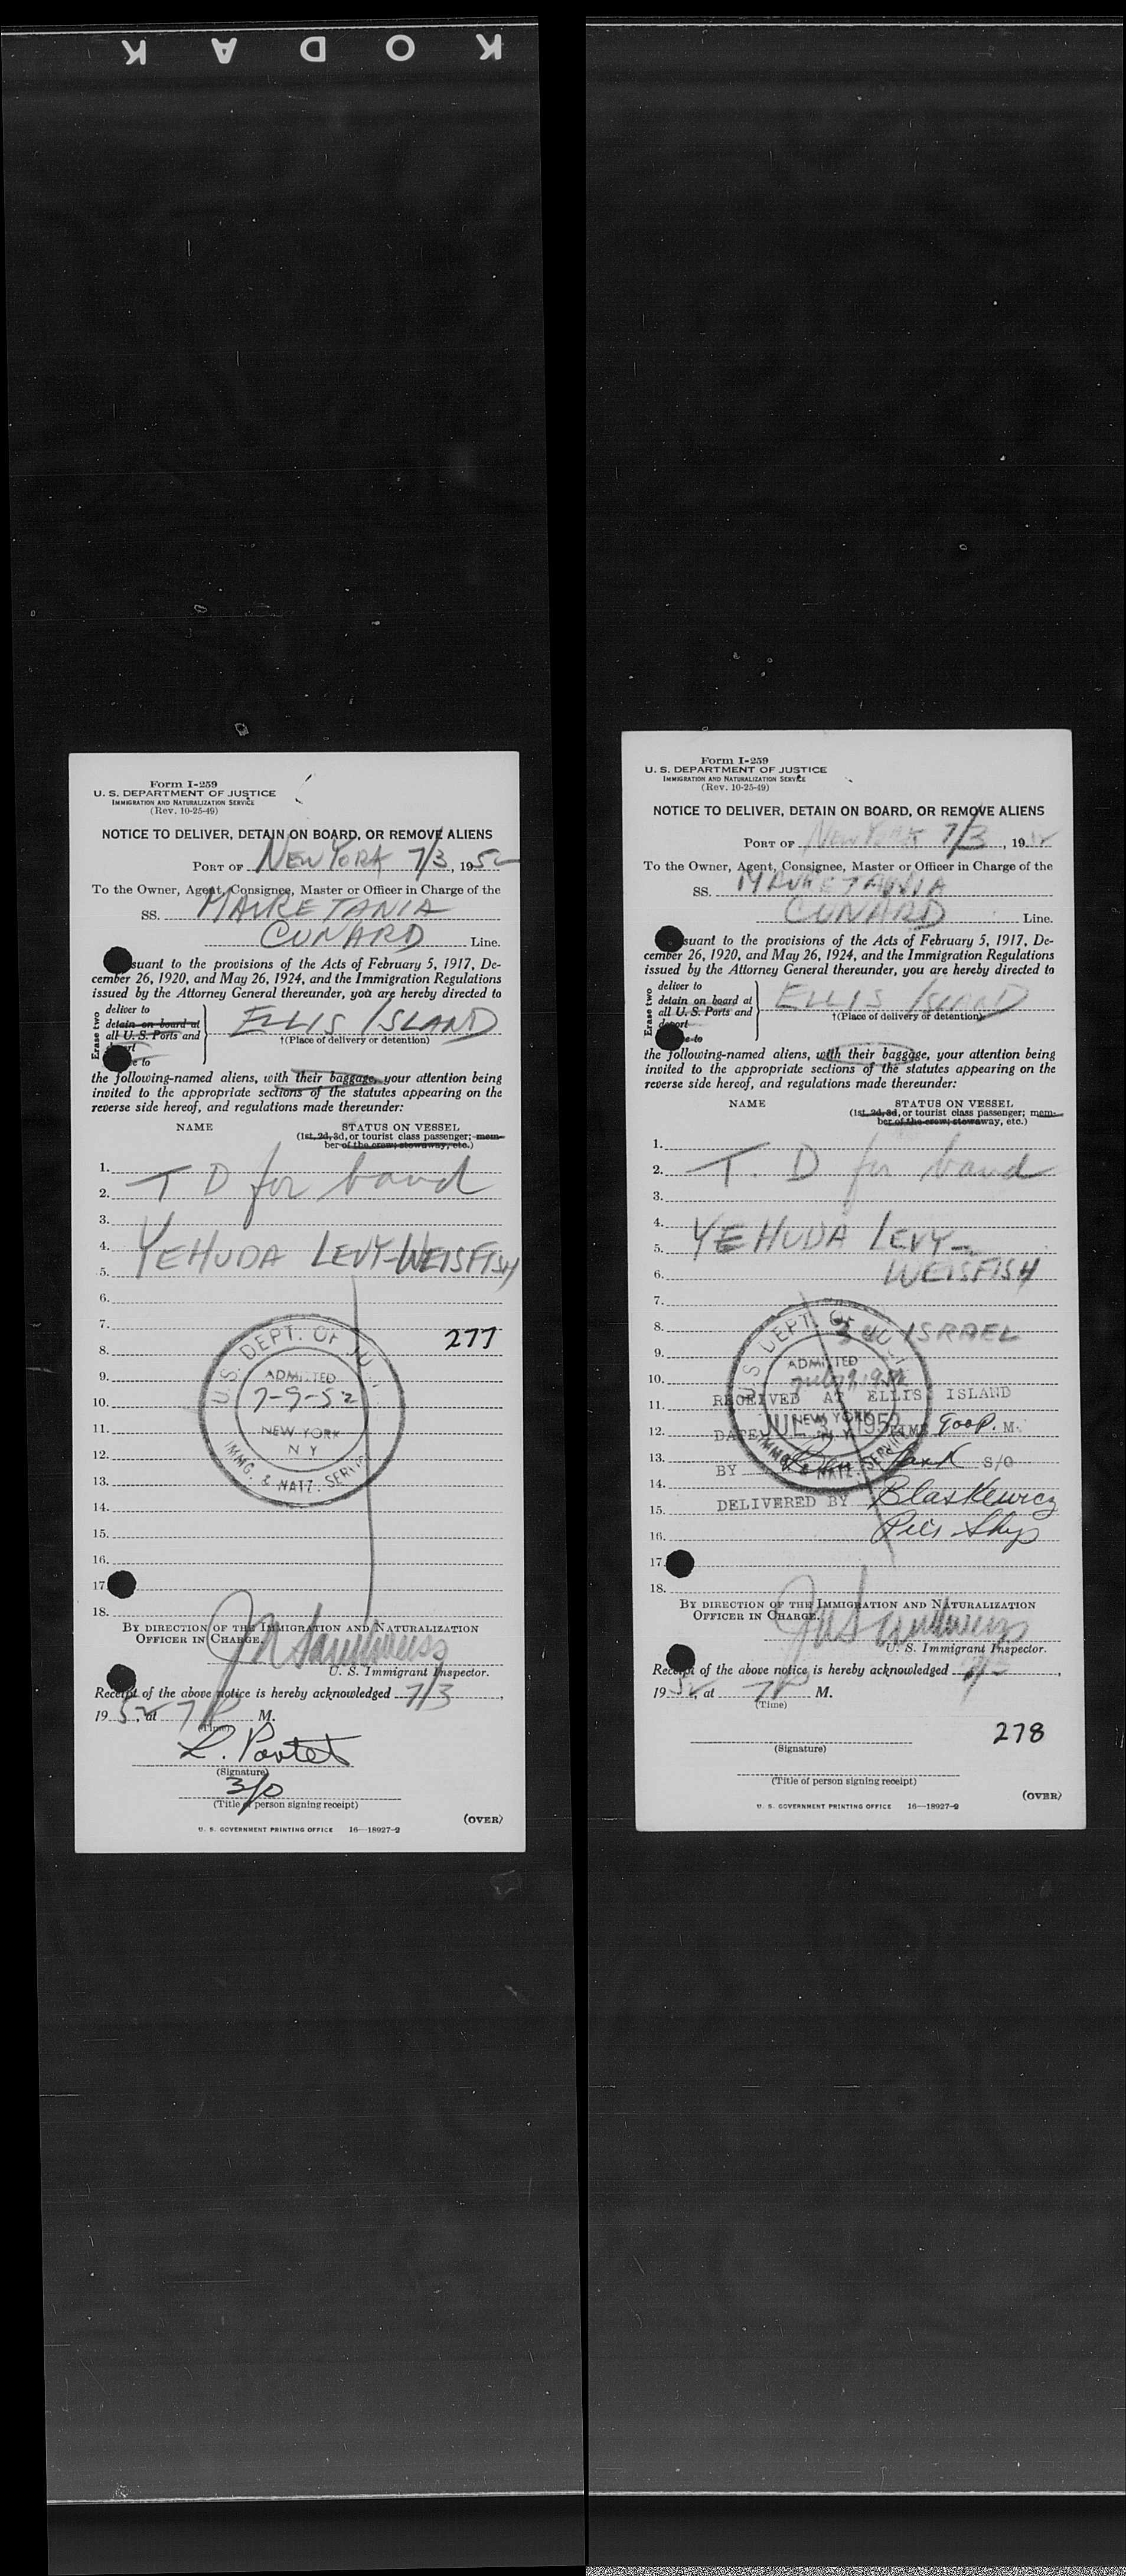 KODAK
Form I-259
U. S. DEPARTMENT OF JUSTICE
IMMIGRATION AND NATURALIZATION SERVICE
(Rev. 10-25-49)
NOTICE TO DELIVER, DETAIN ON BOARD, OR REMOVE ALIENS
PORT OF NEW YORK 7/3, 1952
To the Owner, Agent, Consignee, Master or Officer in Charge of the
SS. MAURETANIA
CUNARD Line.
suant to the provisions of the Acts of February 5, 1917, De-
cember 26, 1920, and May 26, 1924, and the Immigration Regulations
issued by the Attorney General thereunder, you are hereby directed to
Erase two
deliver to
detain on board at
all U. S. Ports and
e to
ELLIS ISLAND
†(Place of delivery or detention)
the following-named aliens, with their baggage, your attention being
invited to the appropriate sections of the statutes appearing on the
reverse side hereof, and regulations made thereunder:
NAME STATUS ON VESSEL
(1st, 2d, 3d, or tourist class passenger; mem-
ber of the crew; stowaway, etc.)
1.
2. T D for bond
3.
4. YEHUDA LEVY-WEISFISH
5.
6.
7. 277
8.
9.
10.
11.
12.
13.
14.
15.
16.
17.
18.
U.S. DEPT. OF JU
ADMITTED
7-9-52
NEW YORK
N Y
IMMG. & NATZ. SERV
BY DIRECTION OF THE IMMIGRATION AND NATURALIZATION
OFFICER IN CHARGE.
U. S. Immigrant Inspector.
Receipt of the above notice is hereby acknowledged 7/3,
1952, at 7 P M.
(Time)
L. Portet
(Signature)
3/0
(Title of person signing receipt)
(OVER)
U. S. GOVERNMENT PRINTING OFFICE 16—18927-2
Form I-259
U. S. DEPARTMENT OF JUSTICE
IMMIGRATION AND NATURALIZATION SERVICE
(Rev. 10-25-49)
NOTICE TO DELIVER, DETAIN ON BOARD, OR REMOVE ALIENS
PORT OF New York 7/3, 1952
To the Owner, Agent, Consignee, Master or Officer in Charge of the
SS. MAURETANIA
CUNARD Line.
suant to the provisions of the Acts of February 5, 1917, De-
cember 26, 1920, and May 26, 1924, and the Immigration Regulations
issued by the Attorney General thereunder, you are hereby directed to
Erase two
deliver to
detain on board at
all U. S. Ports and
deport
e to
ELLIS ISLAND
†(Place of delivery or detention)
the following-named aliens, with their baggage, your attention being
invited to the appropriate sections of the statutes appearing on the
reverse side hereof, and regulations made thereunder:
NAME STATUS ON VESSEL
(1st, 2d, 3d, or tourist class passenger; mem-
ber of the crew; stowaway, etc.)
1.
2. T. D for bond
3.
4.
5. YEHUDA LEVY-
6. WEISFISH
7.
8. ISRAEL
9.
10.
11. RECEIVED AT ELLIS ISLAND
12. DATE JUL 3 1952 TIME 900 P. M.
13. BY S/O
14.
15. DELIVERED BY Blaskewicz
16.
17.
18.
U.S. DEPT. OF JU
ADMITTED
July 9, 1952
NEW YORK
N. Y.
IMMG. & NATZ. SERV
BY DIRECTION OF THE IMMIGRATION AND NATURALIZATION
OFFICER IN CHARGE.
U. S. Immigrant Inspector.
Receipt of the above notice is hereby acknowledged 7/3,
1952, at 7 P M.
(Time)
278
(Signature)
(Title of person signing receipt)
(OVER)
U. S. GOVERNMENT PRINTING OFFICE 16—18927-2